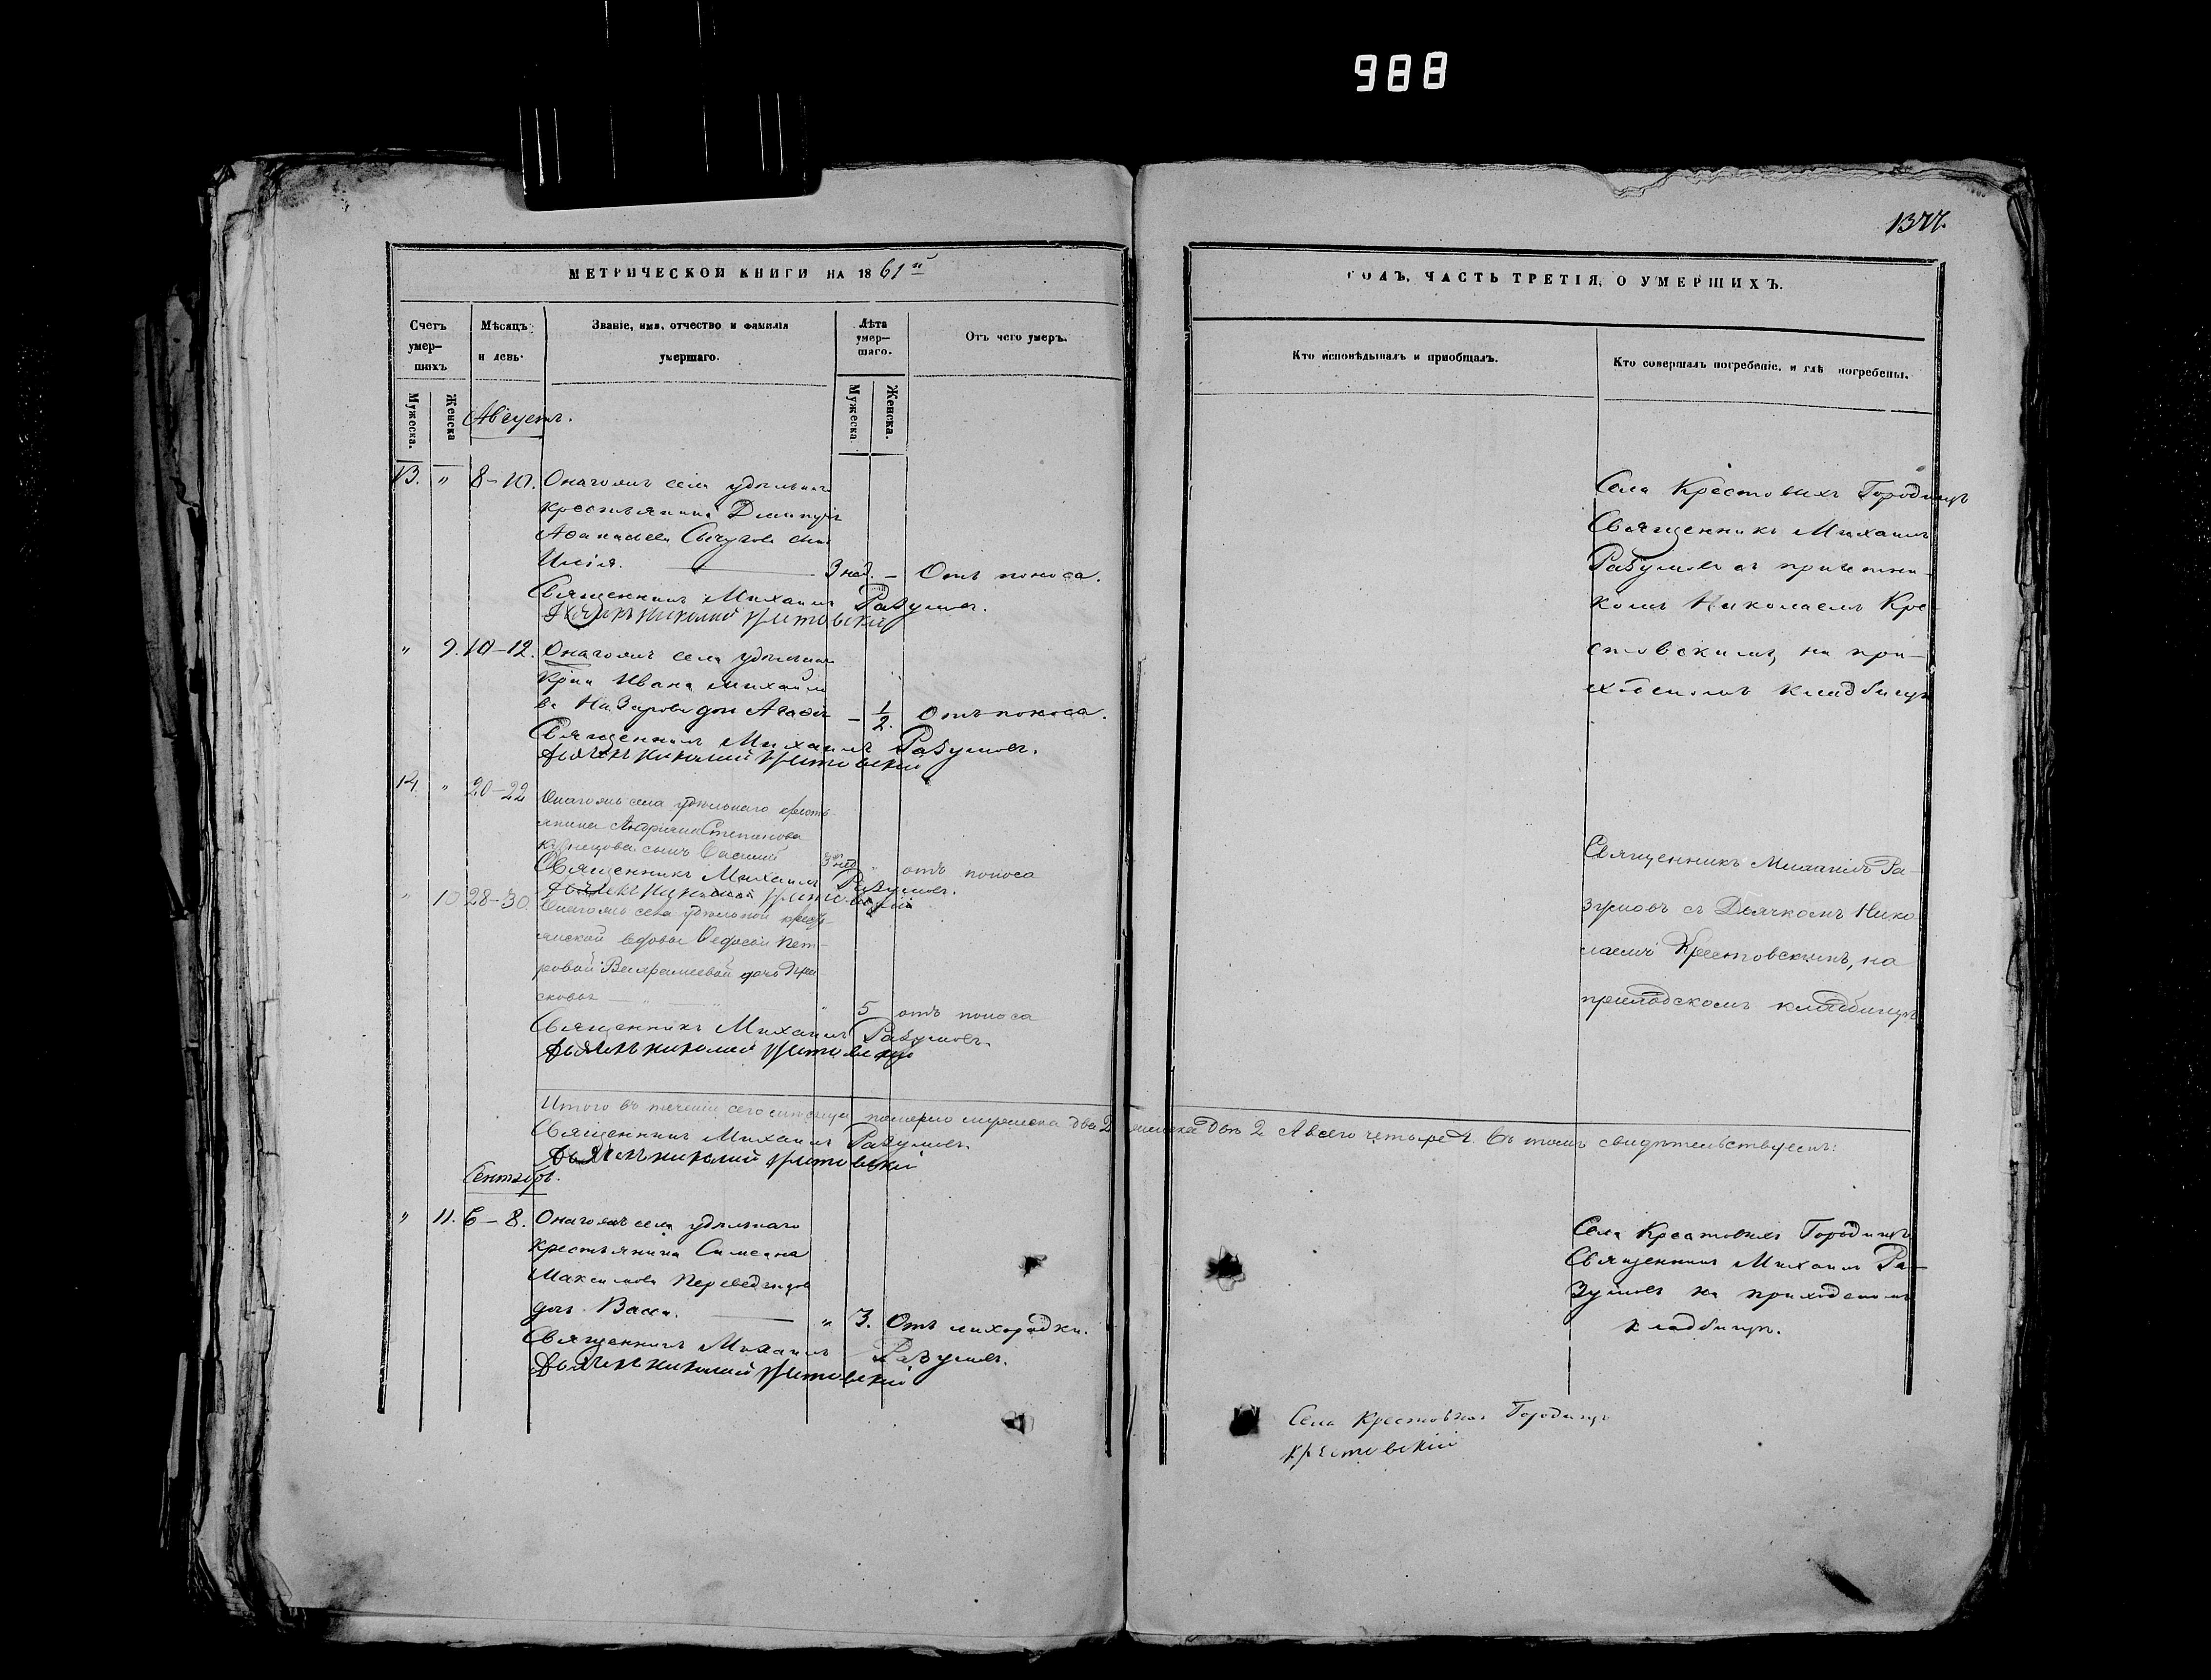 988
1377.
МЕТРИЧЕСКОЙ КНИГИ НА 1861й
ГОДЪ, ЧАСТЬ ТРЕТІЯ, О УМЕРШИХЪ.
Счетъ умер-шихъ
Мѣсяцъ и день.
Званіе, имя, отчество и фамилія умершаго.
Лѣта умер-шаго.
Отъ чего умеръ.
Кто исповѣдывалъ и приобщалъ.
Кто совершалъ погребеніе, и гдѣ погребены.
Мужеска.
Женска
Мужеска.
Женска.
Августъ.
13. " 8-10. Онагожъ села удѣльнаго
крестьянина Димитрія
Аѳанасьева сынъ
Илія. 3 нед. - Отъ поноса.
Священникъ Михаилъ Разумовъ.
Дьячекъ Николай Крестовскій
Села Крестовыхъ Городищъ
Священникъ Михаилъ
Разумовъ съ причетни-
комъ Николаемъ Кре-
стовскимъ, на при-
ходскомъ кладбищѣ
" 9. 10-12. Онагожъ села удѣльнаго
крин Ивана Михайло
ва Назарова дочь Агаѳія - 1/2. Отъ поноса.
Священникъ Михаилъ Разумовъ.
Дьячекъ Николай Крестовскій
14. " 20-22 Онагожъ села удѣльнаго кресть-
янина Андріяна Степанова
Кузнецова сынъ Василій 3 нед " отъ поноса
Священникъ Михаилъ Разумовъ.
Дьячекъ Николай Крестовскій
Священникъ Михаилъ Ра-
зумовъ съ Дьячкомъ Нико
лаемъ Крестовскимъ, на
приходскомъ кладбищѣ
" 10 28-30. Онагожъ села удѣльной кресть-
янской вдовы Ѳедосьи Пет-
ровой дочь Пра
сковья " 5 отъ поноса
Священникъ Михаилъ Разумовъ.
Дьячекъ Николай Крестовскій
Итого въ теченіи сего мѣсяца померло мужеска два 2 женска двѣ 2 А всего четыре 4. Въ томъ свидѣтельствуемъ:
Священникъ Михаилъ Разумовъ.
Дьячекъ Николай Крестовскій
Сентябрь.
" 11. 6-8. Онагожъ села удѣльнаго
крестьянина Симеона
Максимова
дочь Васса. " 3. Отъ лихорадки.
Священникъ Михаилъ Разумовъ.
Дьячекъ Николай Крестовскій
Села Крестовыхъ Городищъ
Священникъ Михаилъ Ра-
зумовъ на приходскомъ
кладбищѣ.
Села Крестовыхъ Городищъ
Крестовскій